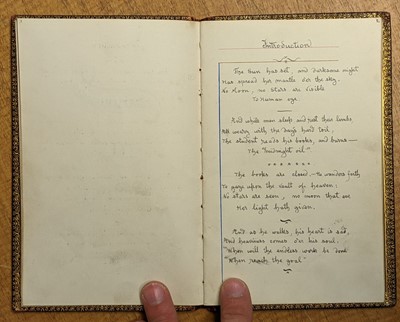 Introduction
The Sun has set, and darksome night
Has spread her mantle o'er the sky.
No Moon, no stars are visible
To Human eye.
And while men sleep and rest their heads,
All weary with the day's hard toil,
The student reads his books, and burns—
The "midnight oil."
The books are closed,— He wanders forth
To gaze upon the vault of heaven;
No stars are seen, no moon that eve
Her light hath given.
And as he walks, his heart is sad,
And heaviness comes o'er his soul.
"When will the endless work be done
"When reach the goal"